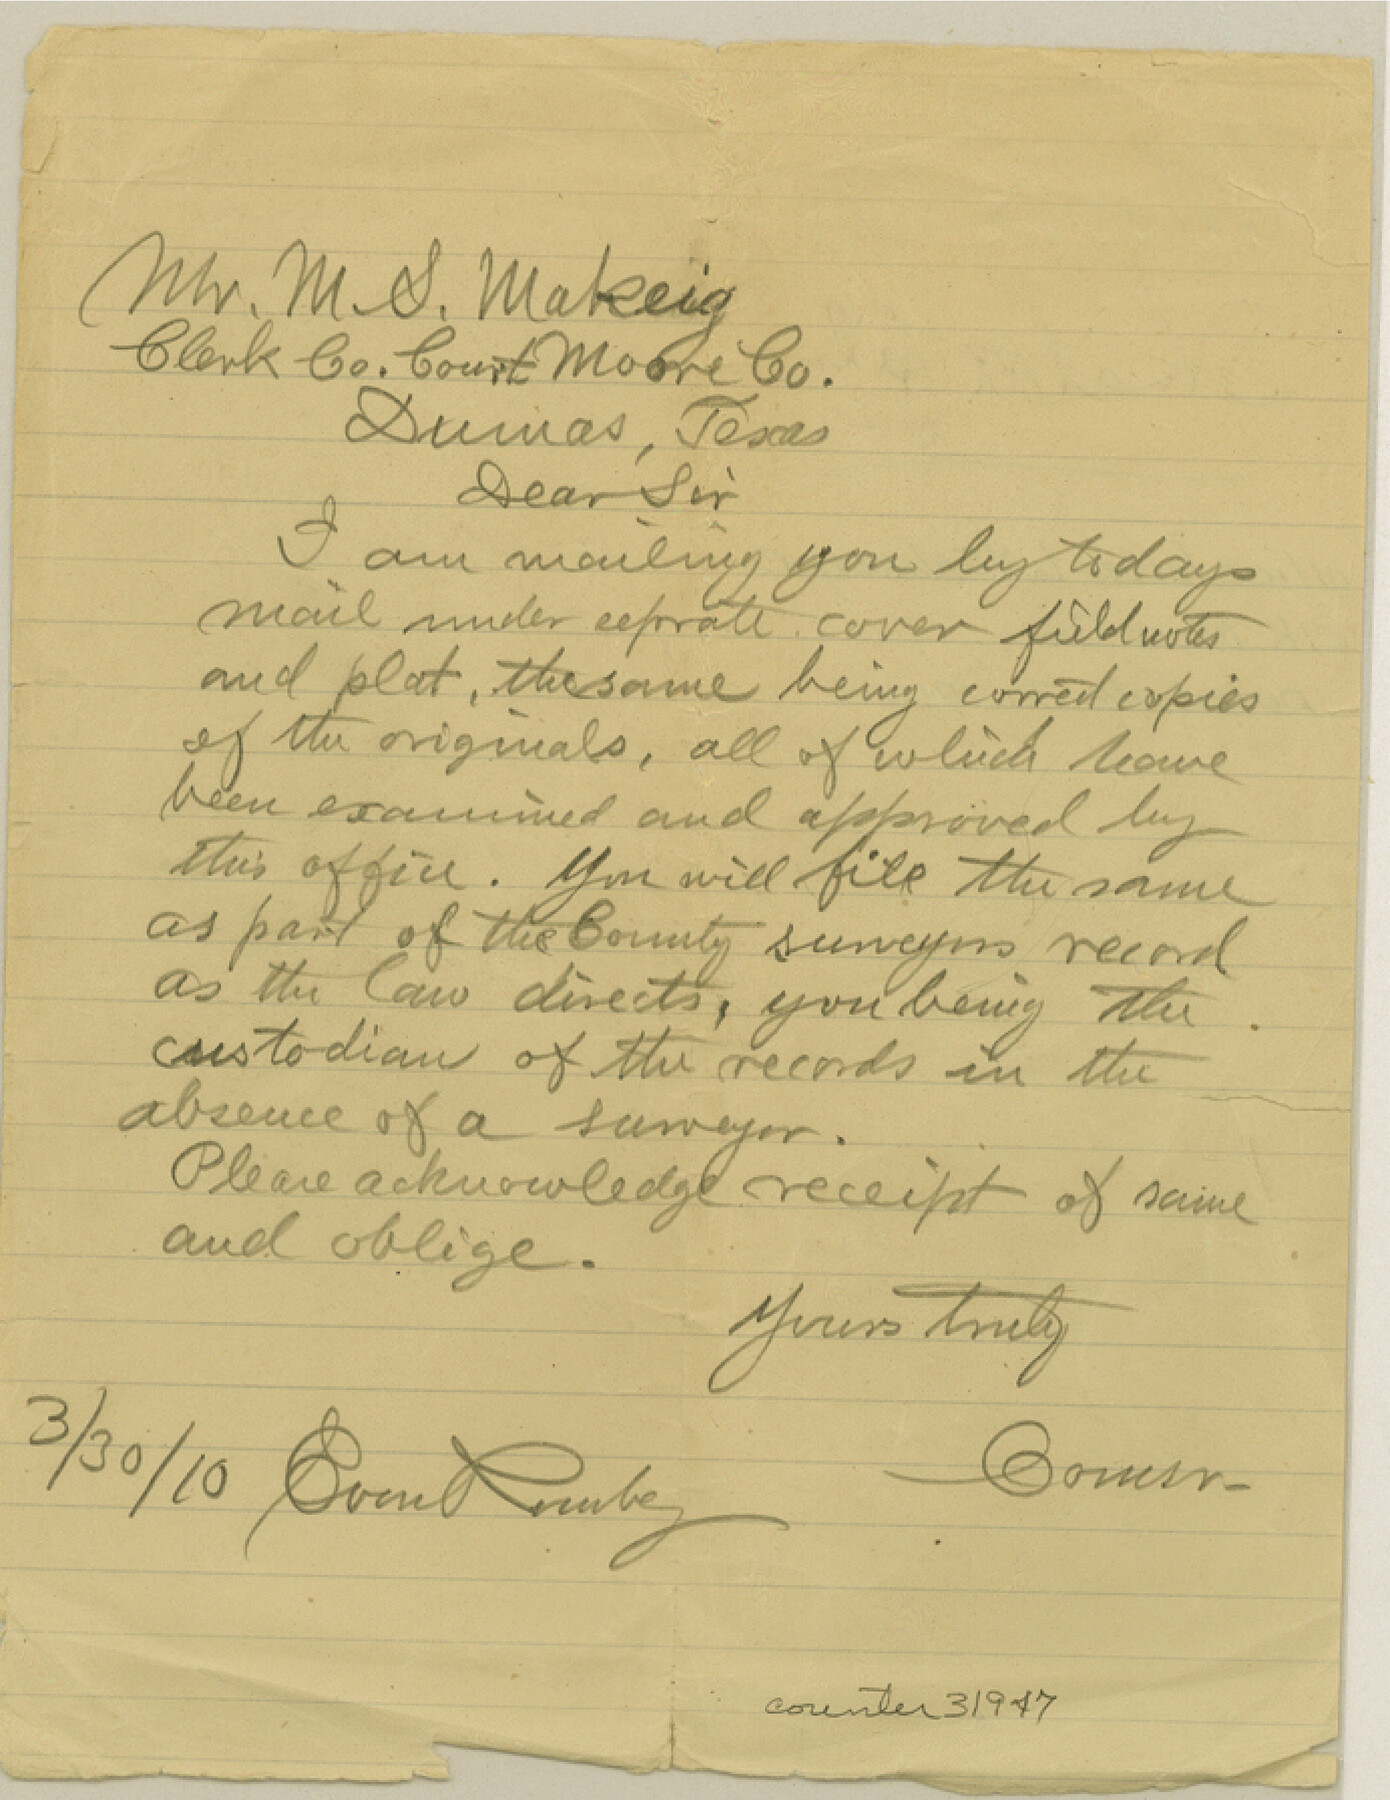 Mr. M. S. Makeig
Clerk Co. Court Moore Co.
Dumas, Texas
Dear Sir
I am mailing you by todays
mail under seprate cover fieldnotes
and plat, the same being correct copies
of the originals, all of which have
been examined and approved by
this office. You will file the same
as part of the County surveyors record
as the law directs, you being the
custodian of the records in the
absence of a surveyor.
Please acknowledge receipt of same
and oblige.
Yours truly
3/30/10
Comsr
counter 31947